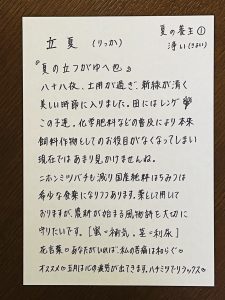 夏の養生①
立夏 (りっか) 浄い(きよい)
『夏の立つがゆへ也』
八十八夜、土用が過ぎ、新緑が清く
美しい時節に入りました。田にはレンゲ
この子達。化学肥料などの普及により本来
飼料作物としてのお役目がなくなってしまい
現在ではあまり見かけませんね。
ニホンミツバチも減り国産純はちみつは
希少な食薬になりつつあります。薬として用いて
おりますが、農耕が始まる風物詩も大切に
守りたいです。[蜜=補気、茎=利尿]
花言葉 あなたがいれば、私の苦痛は和らぐ
オススメ 五月は心の疲労が出てきます。ハチミツでリラックス